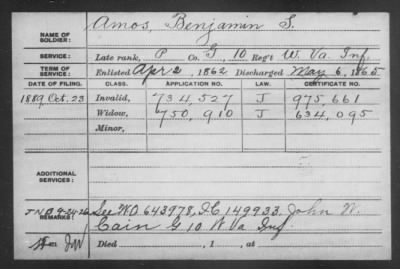 NAME OF SOLDIER: Amos, Benjamin S.
SERVICE: Late rank, P Co. G, 10 Reg't W. Va. Inf.
TERM OF SERVICE: Enlisted Apr 2, 1862 Discharged May 6, 1865
DATE OF FILING. CLASS. APPLICATION NO. LAW. CERTIFICATE NO.
1889 Oct. 23 Invalid, 734,527 J 975,661
Widow, 750,910 J 634,095
Minor,
ADDITIONAL SERVICES:
JNB 9-24-26 See WO 643978, I.C. 149933. John W.
REMARKS: Cain G 10 W Va Inf
Died , 1 , at